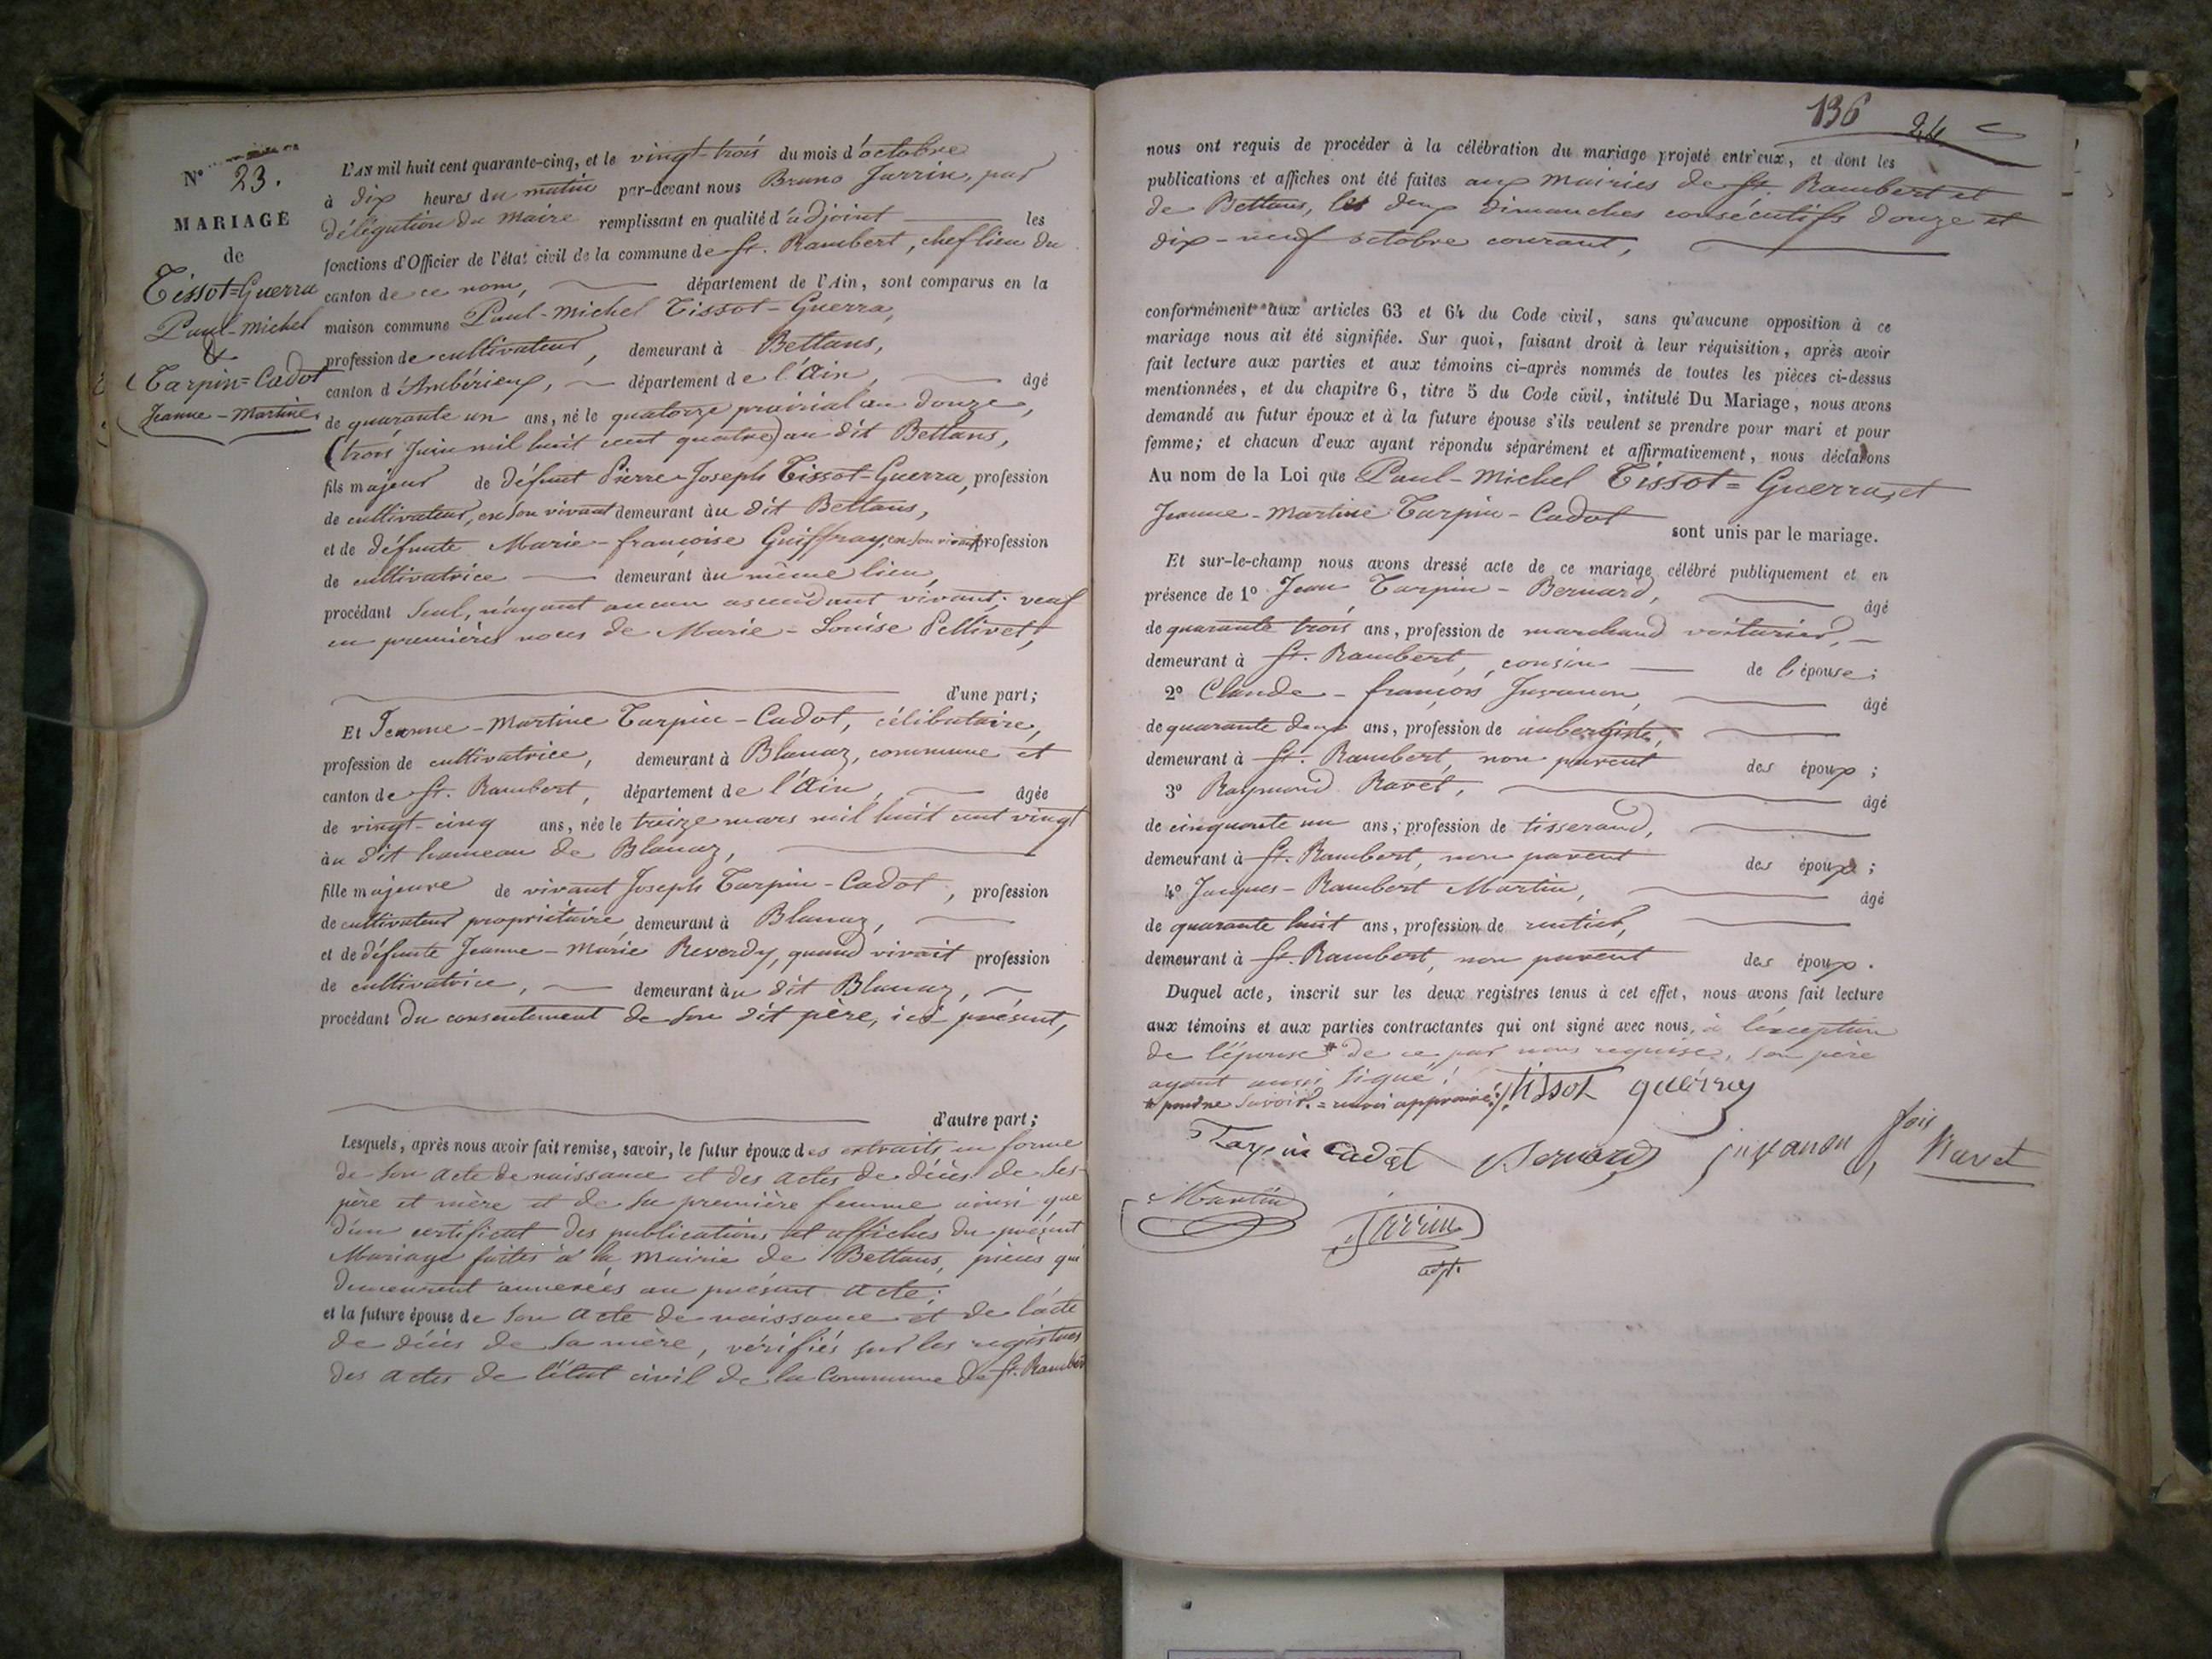 N° 23.
MARIAGE
de
Tissot=Guerra
Paul-Michel
&
Tarpin=Cadot
Jeanne-Martine
L'AN mil huit cent quarante-cinq, et le vingt-trois du mois d'octobre
à dix heures du matin par-devant nous Bruno Jarrin, par
délégation du Maire remplissant en qualité d'adjoint les
fonctions d'Officier de l'état civil de la commune de St. Rambert, chef lieu du
canton de ce nom, département de l'Ain, sont comparus en la
maison commune Paul-Michel Tissot-Guerra,
profession de cultivateur, demeurant à Bettans,
canton d'Ambérieux, département de l'Ain, âgé
de quarante un ans, né le quatorze prairial an douze,
(trois Juin mil huit cent quatre) au dit Bettans,
fils majeur de défunt Pierre-Joseph Tissot-Guerra, profession
de cultivateur, en son vivant demeurant au dit Bettans,
et de défunte Marie-françoise Guiffray, en son vivant profession
de cultivatrice demeurant au même lieu,
procédant seul, n'ayant aucun ascendant vivant; veuf
en premières noces de Marie-Louise Pellivet,
d'une part;
Et Jeanne-Martine Tarpin-Cadot, célibataire,
profession de cultivatrice, demeurant à Blanaz, commune et
canton de St. Rambert, département de l'Ain, âgée
de vingt-cinq ans, née le treize mars mil huit cent vingt
au dit hameau de Blanaz,
fille majeure de vivant Joseph Tarpin-Cadot, profession
de cultivateur propriétaire demeurant à Blanaz,
et de défunte Jeanne-Marie Reverdy, quand vivait profession
de cultivatrice, demeurant au dit Blanaz,
procédant du consentement de son dit père, ici présent,
d'autre part;
Lesquels, après nous avoir fait remise, savoir, le futur époux des extraits en forme
de son acte de naissance et des actes de décès de ses
père et mère et de sa première femme ainsi que
d'un certificat des publications et affiches du présent
Mariage faites à la Mairie de Bettans, pièces qui
demeurent annexées au présent acte;
et la future épouse de son acte de naissance et de l'acte
de décès de sa mère, vérifiés sur les registres
des actes de l'état civil de la Commune de St. Rambert
136 24
nous ont requis de procéder à la célébration du mariage projeté entr'eux, et dont les
publications et affiches ont été faites aux mairies de St. Rambert et
de Bettans, les deux dimanches consécutifs douze et
dix-neuf octobre courant,
conformément aux articles 63 et 64 du Code civil, sans qu'aucune opposition à ce
mariage nous ait été signifiée. Sur quoi, faisant droit à leur réquisition, après avoir
fait lecture aux parties et aux témoins ci-après nommés de toutes les pièces ci-dessus
mentionnées, et du chapitre 6, titre 5 du Code civil, intitulé Du Mariage, nous avons
demandé au futur époux et à la future épouse s'ils veulent se prendre pour mari et pour
femme; et chacun d'eux ayant répondu séparément et affirmativement, nous déclarons
Au nom de la Loi que Paul-Michel Tissot=Guerra, et
Jeanne-Martine Tarpin-Cadot sont unis par le mariage.
Et sur-le-champ nous avons dressé acte de ce mariage célébré publiquement et en
présence de 1° Jean Tarpin-Bernard, âgé
de quarante trois ans, profession de marchand voiturier,
demeurant à St. Rambert, cousin de l'épouse;
2° Claude-françois Juvanon, âgé
de quarante deux ans, profession de aubergiste,
demeurant à St. Rambert, non parent des époux;
3° Raymond Ravet, âgé
de cinquante un ans, profession de tisserand,
demeurant à St. Rambert, non parent des époux;
4° Jacques-Rambert Martin, âgé
de quarante huit ans, profession de rentier,
demeurant à St. Rambert, non parent des époux.
Duquel acte, inscrit sur les deux registres tenus à cet effet, nous avons fait lecture
aux témoins et aux parties contractantes qui ont signé avec nous, à l'exception
de l'épouse * de ce par nous requise, son père
ayant aussi signé!
* pour ne savoir. = renvoi approuvé. tissot guerra
Tarpin cadot Bernard juvanon fois Ravet
Martin Jarrin
adjt.